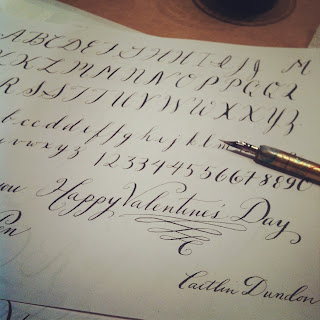 A B C D E F G H H I J J M
K L M M N O P P Q
R S S T T U V V W X X Y Z
b c c d d e f f g h i j k l m
v w x y z 1 2 3 3 4 4 5 5 6 6 7 8 8 9 0
you Happy Valentine's Day
Pen
Caitlin Dundon